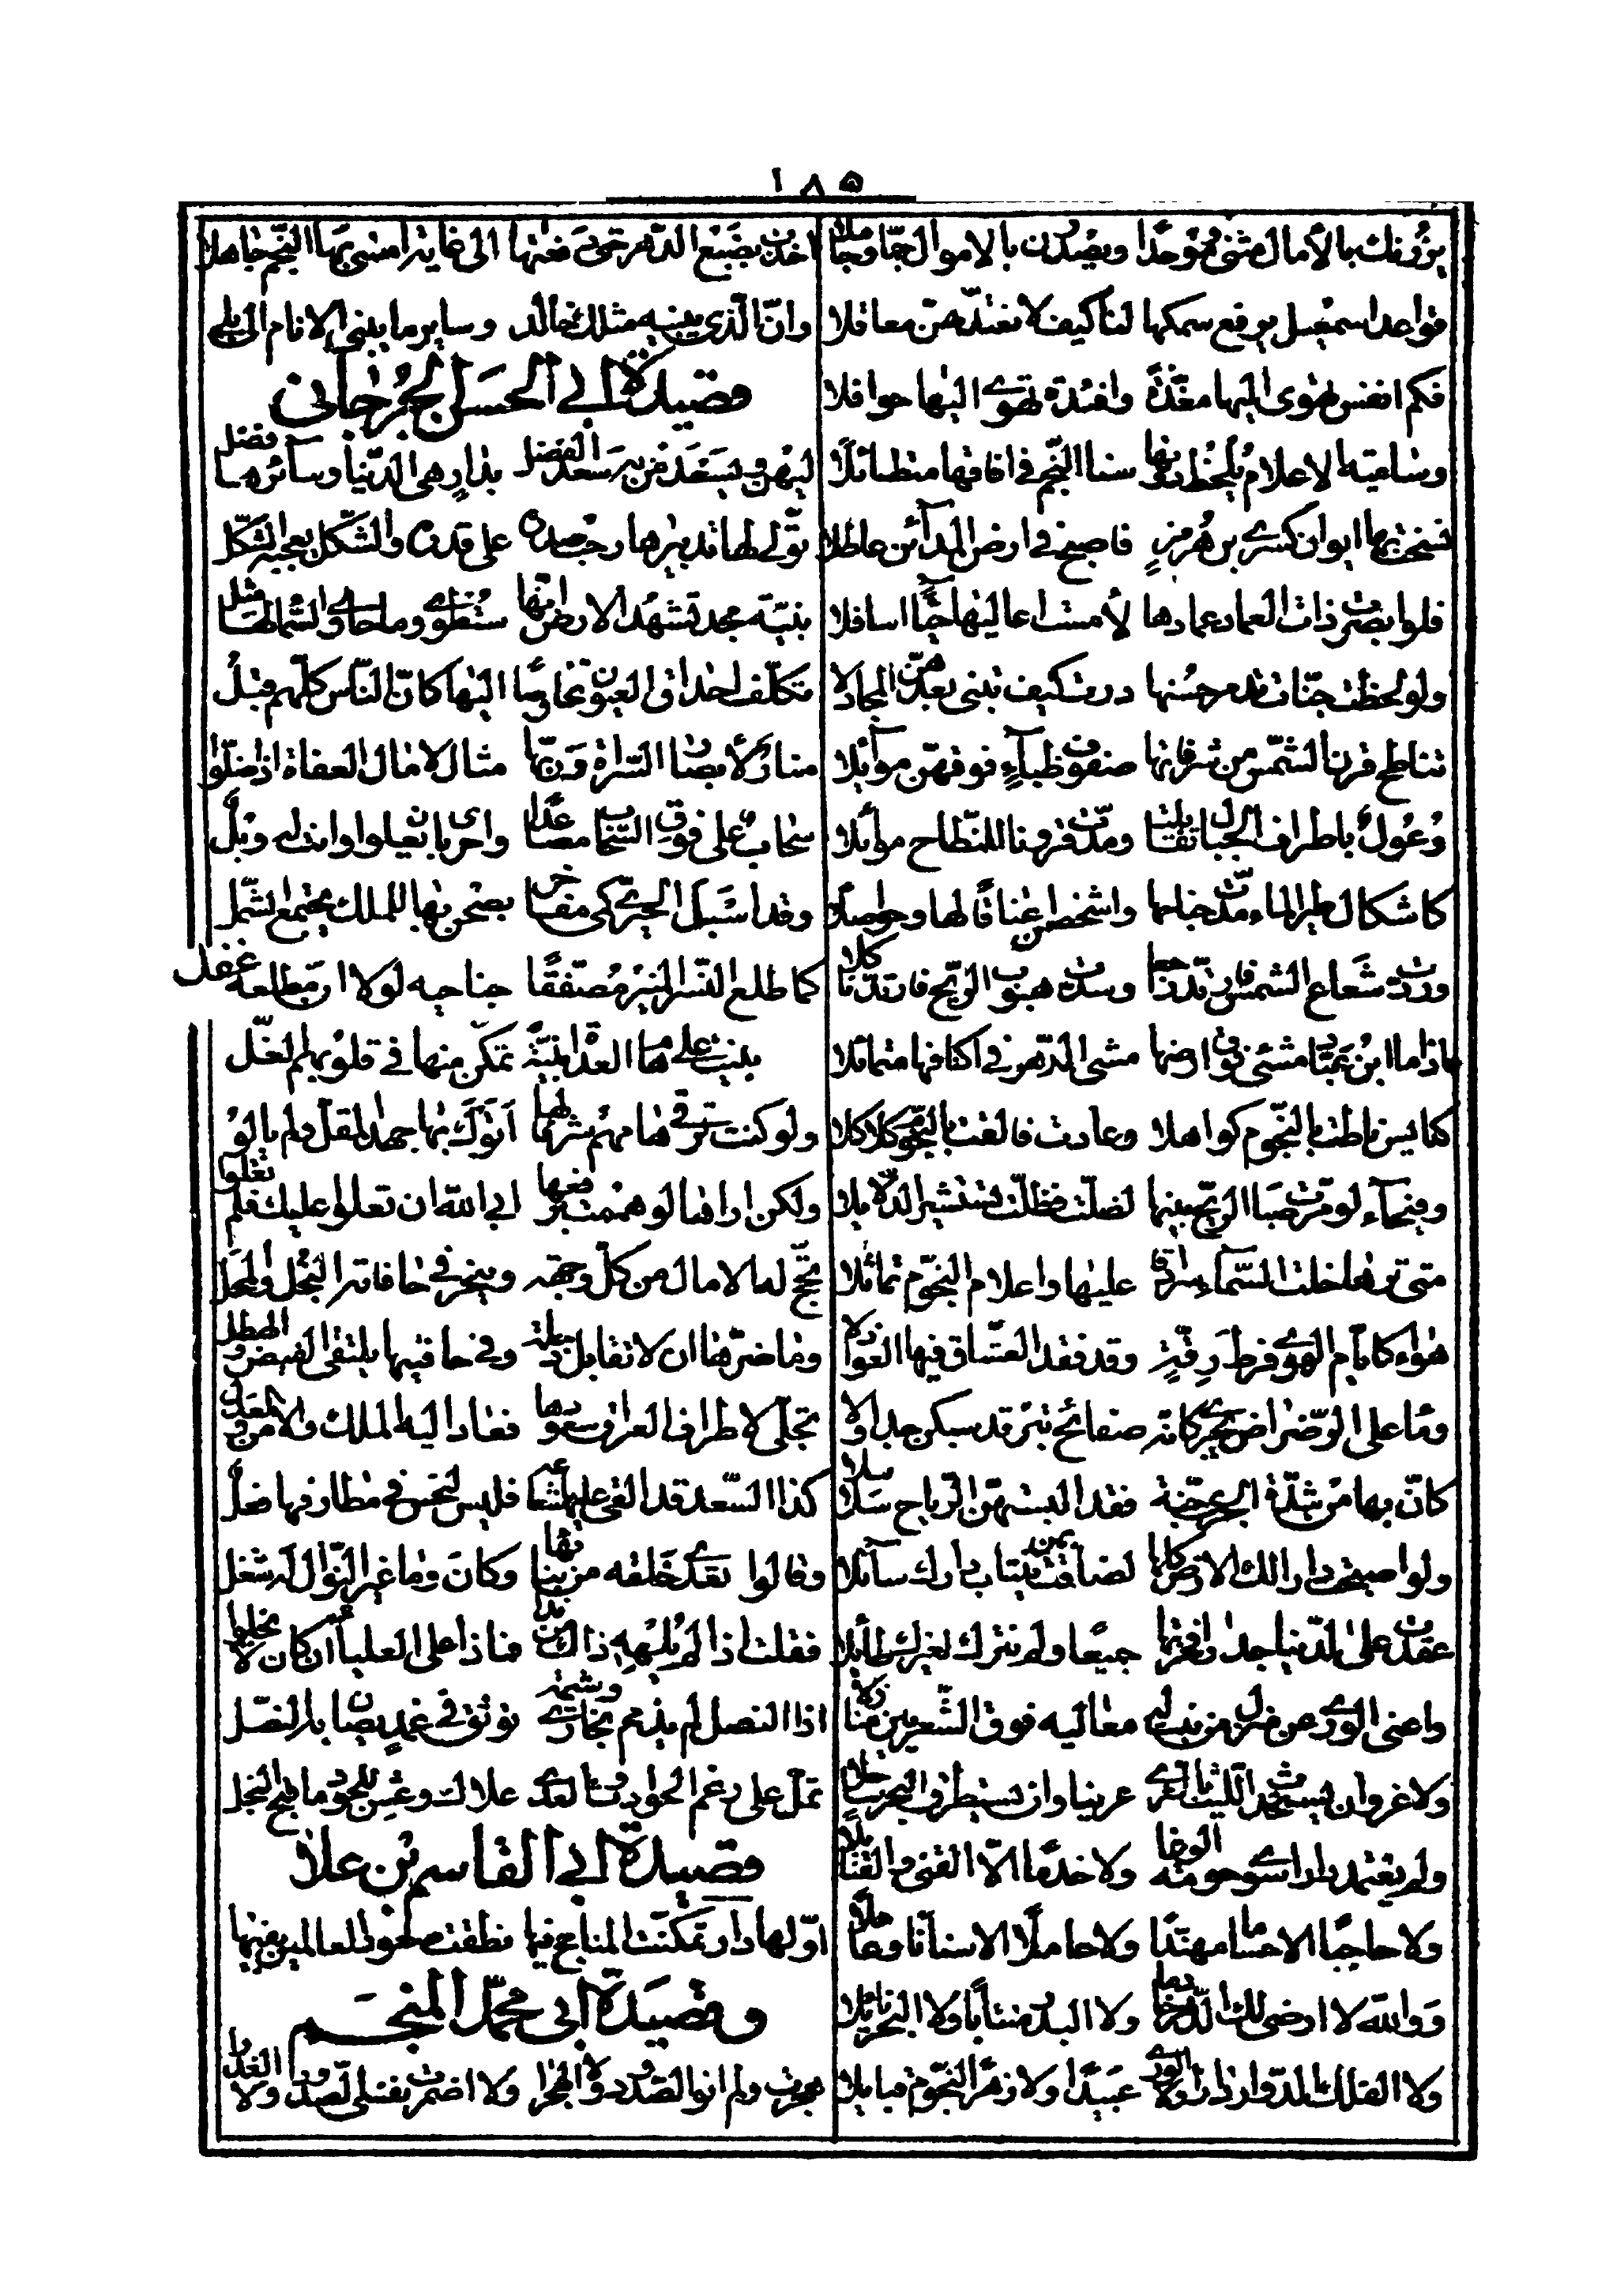 ١٨٥
يزرنك بالآمال مثنى وموحدا ويصدرن بالاموال جما وجاملا
قواعد اسمعيل يرفع سمكها لنا كيف لا نعتدهن معاقلا
فكم انفس تهوى اليها مغذة وافئدة تهوي اليها حوافلا
وسامية الاعلام يلحظ دونها سنا النجم في افاقها متضائلا
نسخت بها ايوان كسرى بن هرمز فاصبح في ارض المدائن عاطلا
فلو ابصرت ذات العماد عمادها لأمست اعاليها حياء اسافلا
ولو لحظت جنات تدمر حسنها درت كيف تبنى بعدهن المجادلا
تناطح قرن الشمس من شرفاتها صفوف ظباء فوقهن موايلا
وعول باطراف الجبال تقابلت ومدت قرونا للنطاح موائلا
كاشكال طير الماء مدت جناحها واشخصن اعناقا لها وحواصلا
وردت شعاع الشمس فارتد راجعا وسدت هبوب الريح فارتد ناكلا
اذا ما ابن عباد مشى فوق ارضها مشى الدهر في اكنافها متمائلا
كنايس ناطت بالنجوم كواهلا وعادت فالقت بالنجوم كلاكلا
وفيحاء لو مرت صبا الريح بينها لضلت فظلت تستشير الدلايلا
متى ترها خلت السماء سرادقا عليها واعلام النجوم تماثلا
هواء كايام الهوى فرط رقة وقد فقد العشاق فيها العواذلا
وماء على الرضراض يجري كانه صفائح تبر قد سبكن جداولا
كان بها من شدة الجري جنة فقد البستهن الرياح سلاسلا
ولو اصبحت دارا لك الارض كلها لضاقت بمن ينتاب دارك سائلا
عقدت على الدنيا جدارا فحزتها جميعا ولم تترك لغيرك طائلا
واغنى الورى عن منزل من بنت له معاليه فوق الشعريين منازلا
ولا غرو ان يستحدث الليث بالشرى عرينا وان يستطرف البحر ساحلا
ولم يعتمد دارا سوى حومة الوغا ولا خدما الا القنى والقنابلا
ولا حاجبا الا حساما مهندا ولا حاملا الا سنانا وعاملا
ووالله لا ارضى لك الدهر خادما ولا البدر منتابا ولا البحر نائلا
ولا الفلك الدوار دارا ولا الورى عبيدا ولا زهر النجوم قبايلا
اخذن بضبع الدهر حتى دفعنها الى غاية امسى بها النجم جاهلا
وان الذي يبنيه مثلك خالد وساير ما يبنى الانام الى بلى
وقصيدة ابي الحسن الجرجاني
ليهن ويسعد من به سعد الفضل بدار هي الدنيا وسائرها فضل
تولى لها تقديرها رحب صدره على قدره والشكل يعجبه الشكل
بنية مجد تشهد الارض انها ستطوى وما حاذى السماء لها مثل
تكلف احداق العيون تخاوصا اليها كان الناس كلهم قبل
منار لأبصار السراة وربها مثال الامال العفاة اذا ضلوا
سحاب على فوق السحاب مصاعدا واحرى بان يعلوا وانت له وبل
وقد اسبل الجيري كمى مفاخر بصحن بها للملك يجتمع الشمل
كما طلع النسر المنير مصفقا جناحيه لولا ان مطلعه غفل
بنيت على هام العداة بنية تمكن منها في قلوبهم الغل
ولو كنت ترقى هامهم شرفا لها اتوك بها جهد المقل ولم يالوا
ولكن اراها لو هممت برفعها ابى الله ان تعلوا عليك فلم تعلوا
تحج لها الامال من كل وجهة وينحر في حافاتها البخل والمحل
وما ضرها ان لا تقابل دجلة وفي حافتيها يلتقى الفيض والهطل
تجلى لاطراف العراق سعودها فعاد اليه الملك والامن والعدل
كذا السعد قد القى عليها شعاعه فليس لنحس في مطارفها ضل
وقالوا تعدى خلقه من بنائها وكان وما غير النوال له شغل
فقلت اذا لم يلهه ذاك عن ندا فماذا على العلياء ان كان لا يخلوا
اذا النصل لم يذمم نجارا وشيمة تونق في غمد يصان به النصل
تمل على رغم الحوادث والعدى علاك وعش للجود ما قبح البخل
وقصيدة ابي القاسم بن علاء
اولها دار تمكنت المناهج فيها نطقت سعود العالمين بفيها
وقصيدة ابى محمد المنجم
هجرت ولم انو الصدود ولا الهجرا ولا اضمرت نفسى لصد ولا الغدرا